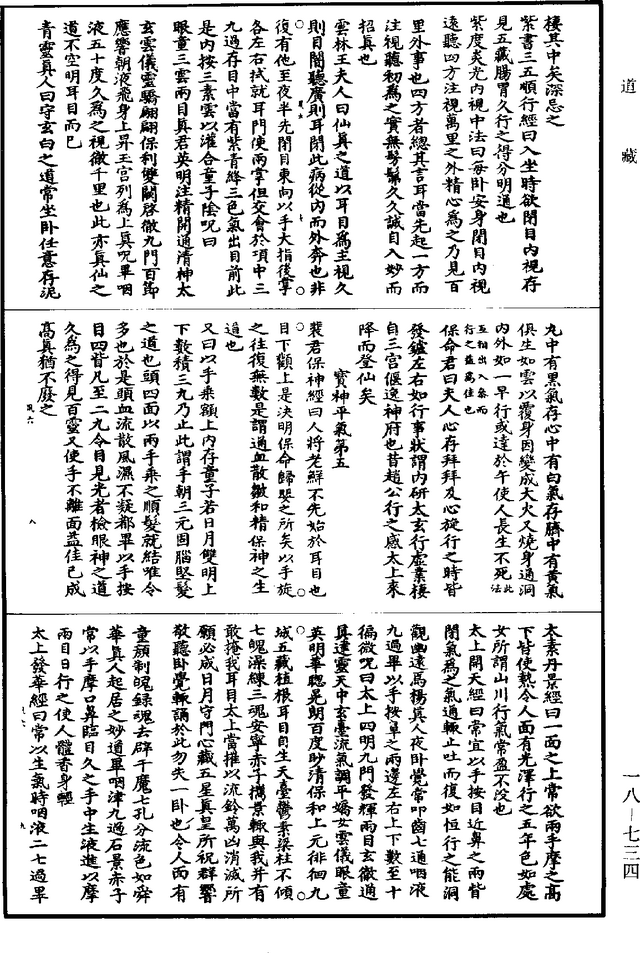 道藏
棲其中矣深忌之
紫書三五順行經曰入坐時欲閉目內視存
見五藏腸胃久行之得分明通也
紫度炎光內視中法曰每卧安身閉目內視
遠聽四方注視萬里之外精心為之乃見百
里外事也四方者總其言耳當先起一方而
注視聽初為之實無髣髴久久誠自入妙而
招真也
雲林王夫人曰仙真之道以耳目為主視久
則目闇聽廣則耳閉此病從內而外奔也非
復有他至夜半先閉目東向以手大指後掌
各左右拭就耳門使兩掌但交會於項中三
九過存目中當有紫青絳三色氣出目前此
是內按三素雲以灌合童子陰呪曰
眼童三雲兩目真君英明注精開通清神太
玄雲儀靈驕翩翩保利雙闕啓徹九門百節
應響朝液飛身上昇王宮列為上真呪畢咽
液五十度久為之視徹千里也此亦真仙之
道不空明耳目而已
青靈真人曰守玄白之道常坐卧任意存泥
丸中有黑氣存心中有白氣存臍中有黃氣
俱生如雲以覆身因變成大火又燒身通洞
內外如一早行或達於午使人長生不死此法
互相出入務而行之益為佳也
保命君曰夫人心存拜拜及心旋行之時皆
發鑪左右如行事狀謂內研太玄行虛業棲
自三宮偃逸神府也昔趙公行之感太上來
降而登仙矣
寶神平氣第五
裴君保神經曰人將老鮮不先始於耳目也
目下顴上是決明保命歸嬰之所矣以手旋
之往復無數是謂通血散皺和精保神之生
道也
又曰以手乘額上內存童子若日月雙明上
下數積三九乃止此謂手朝三元固腦堅髮
之道也頭四面以兩手乘之順髮就結唯令
多也於是頭血流散風濕不疑都畢以手按
目四眥凡至二九令目見光者檢眼神之道
久為之得見百靈又使手不離面益佳已成
高真猶不廢之
太素丹景經曰一面之上常欲兩手摩之高
下皆使熱令人面有光澤行之五年色如處
女所謂山川行氣常盈不沒也
太上開天經曰常宜以手按目近鼻之兩眥
閉氣為之氣通輒止吐而復如恒行之能洞
觀幽遠焉楊真人夜卧覺常叩齒七通咽液
九過畢以手按鼻之兩邊左右上下數至十
徧微呪曰太上四明九門發輝兩目玄徹通
真達靈天中玄臺流氣調平嬌女雲儀眼童
英明華聰晃朗百度眇清保和上元徘徊九
城五藏植根耳目自生天臺鬱素梁柱不傾
七魄澡練三魂安寧赤子攜景輒與我并有
敢掩我耳目太上當推以流鈴萬凶消滅所
願必成日月守門心藏五星真皇所祝群響
敬聽卧覺輒誦於此勿失一卧也令人面有
童顏制魄錄魂去辟千魔七孔分流色如舜
華真人起居之妙道畢咽津九過石景赤子
常以手摩口鼻臨目久之手中生液進以摩
兩目日行之使人體香身輕
太上發華經曰常以生氣時咽液二七過畢
一八—七三四